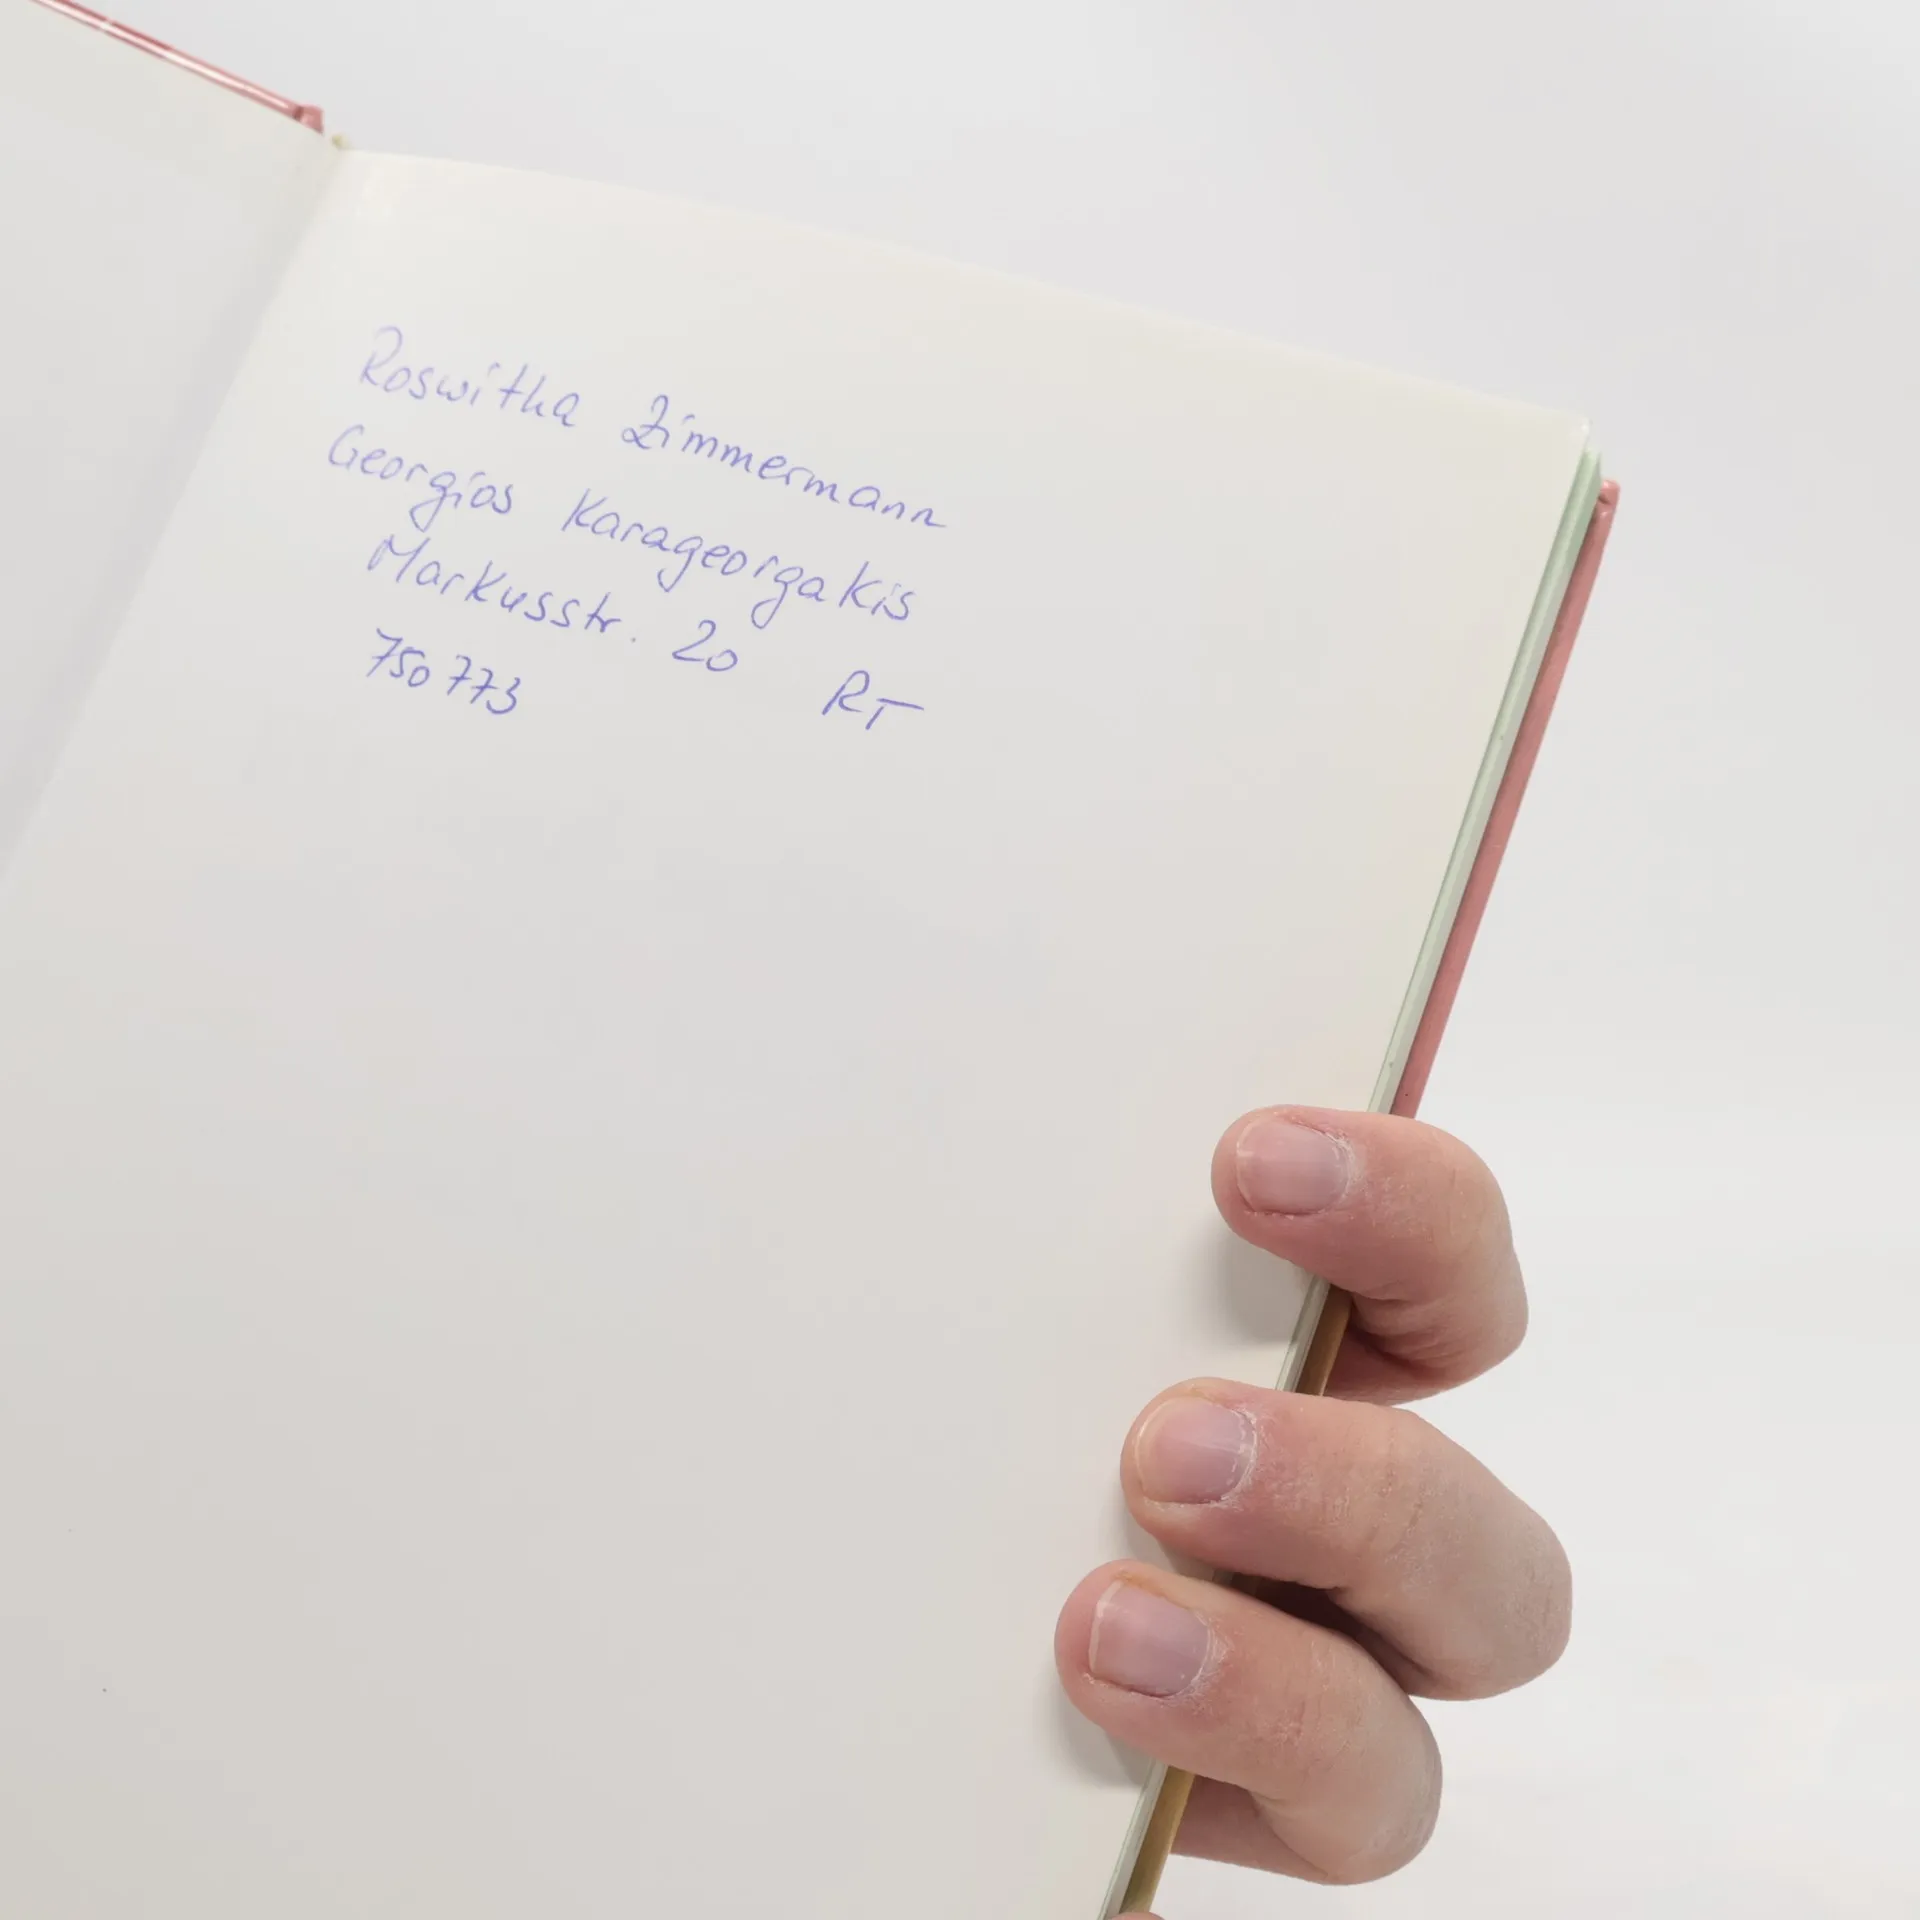 Roswitha Zimmermann
Georgios Karageorgakis
Markusstr. 20 RT
750 773